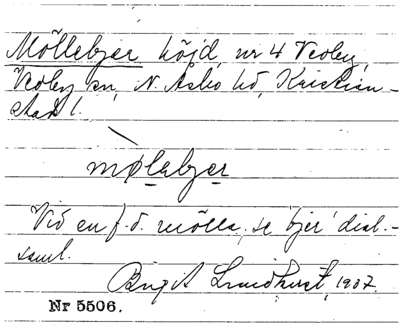 Möllebjer höjd, nr 4 Vedby,
Vedby sn, N. Åsbo hd, Kristian-
stads l.
mølabjer
Vid en f.d. mölla, se 'bjer' dial.-
saml.
Birgit Lundquist, 1937.
Nr 5506.